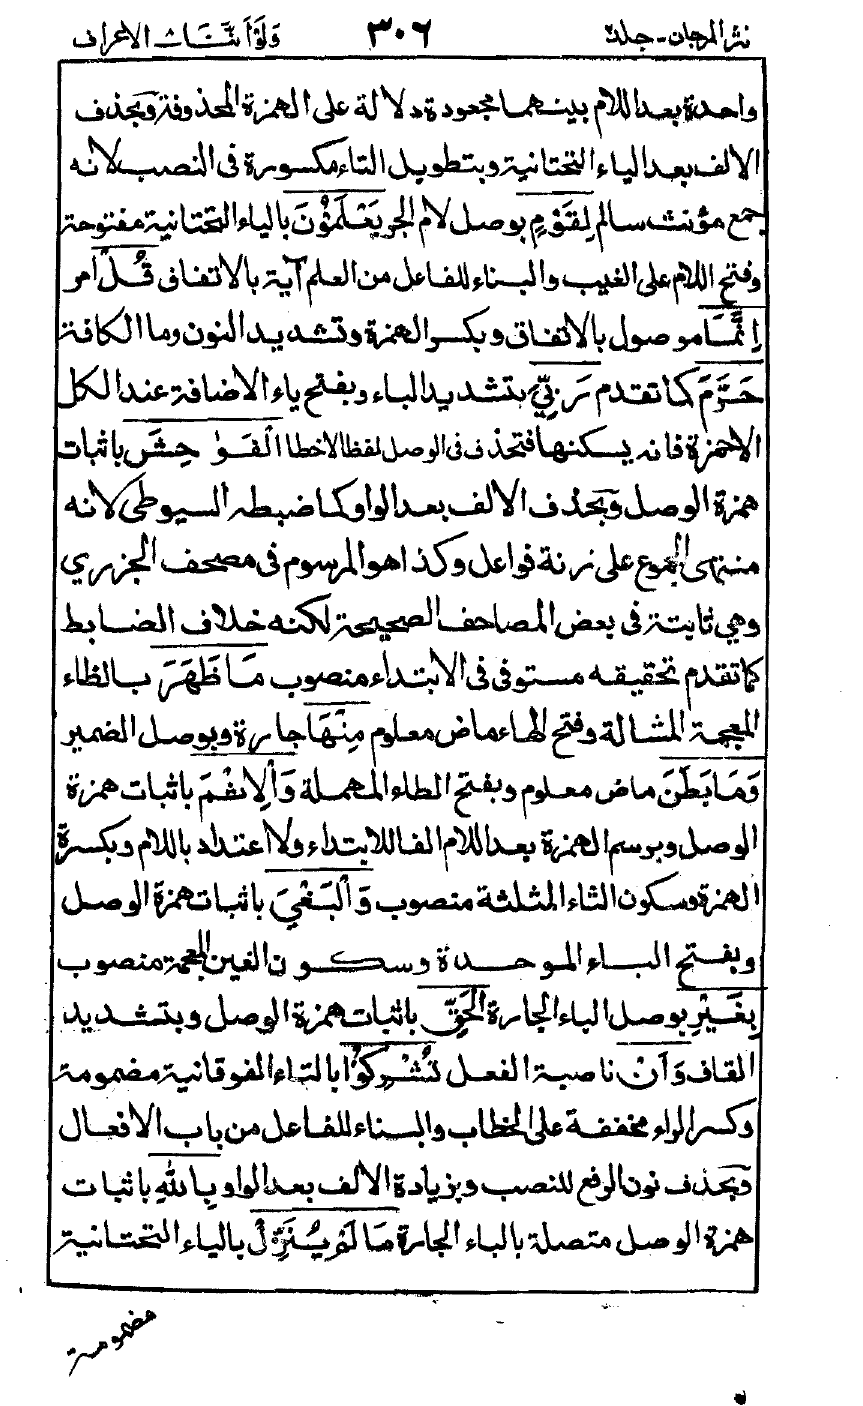 نثر المرجان - جلد٢ ٣٠٦ وَلَوْاَنَّنَا الاعراف
واحدة بعد اللام بينهما مجعودة دلالة على الهمزة المحذوفة وبحذف
الالف بعد الياء التحتانية وبتطويل التاء مكسورة فى النصب لانه
جمع مؤنث سالم لِقَوْمٍ بوصل لام الجر يَعْلَمُوْنَ بالياء التحتانية مفتوحة
وفتح اللام على الغيب والبناء للفاعل من العلم آية بالاتفاق قُلْ امر
اِنَّمَا موصول بالاتفاق وبكسر الهمزة وتشديد النون وما الكافة
حَرَّمَ كما تقدم رَبِّيَ بتشديد الباء وبفتح ياء الاضافة عند الكل
الا حمزة فانه يسكنها فتحذف فى الوصل لفظا لا خطا الْفَوٰحِشَ باثبات
همزة الوصل وبحذف الالف بعد الواو كما ضبطه السيوطى لانه
منتهى الجموع على زنة فواعل وكذا هو المرسوم فى مصحف الجزري
وهي ثابتة فى بعض المصاحف الصحيحة لكنه خلاف الضابط
كما تقدم تحقيقه مستوفى فى الابتداء منصوب مَا ظَهَرَ بالظاء
المعجمة المشالة وفتح الهاء ماض معلوم مِنْهَا جارة وبوصل الضمير
وَمَا بَطَنَ ماض معلوم وبفتح الطاء المهملة وَالْاِثْمَ باثبات همزة
الوصل وبرسم الهمزة بعد اللام الفا للابتداء ولا اعتداد باللام وبكسرة
الهمزة وسكون الثاء المثلثة منصوب وَالْبَغْيَ باثبات همزة الوصل
وبفتح الباء الموحدة وسكون الغين المعجمة منصوب
بِغَيْرِ بوصل الباء الجارة الْحَقِّ باثبات همزة الوصل وبتشديد
القاف وَاَنْ ناصبة الفعل تُشْرِكُوْا بالتاء الفوقانية مضمومة
وكسر الراء مخففة على الخطاب والبناء للفاعل من باب الافعال
وبحذف نون الرفع للنصب وبزيادة الالف بعد الواو بِاللّٰهِ باثبات
همزة الوصل متصلة بالباء الجارة مَا لَمْ يُنَزِّلْ بالياء التحتانية
مضمومة